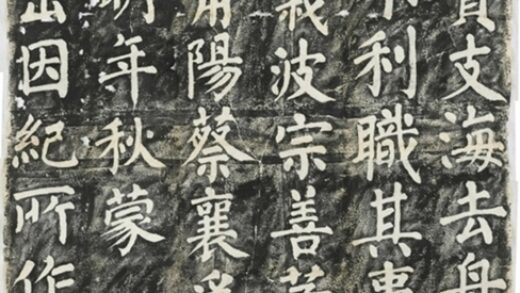 支海去舟
利職其事
義波宗善等
莆陽蔡襄為
明年秋蒙
出因紀所作